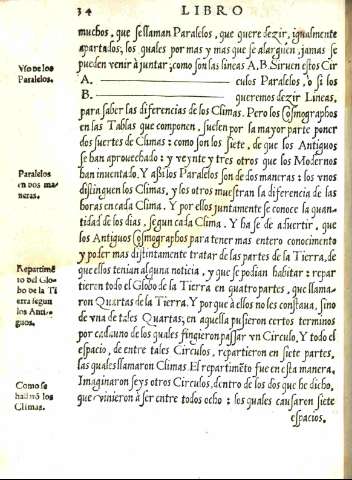 34 LIBRO
muchos, que se llaman Paralelos, que quere dezir, igualmente
apartados; los quales por mas y mas que se alarguen, jamas se
pueden venir à juntar; como son las lineas A, B. Siruen estos Cir
Vso de los
Paralelos.
A. culos Paralelos, o si los
B. queremos dezir Lineas,
para saber las diferencias de los Climas. Pero los Cosmographos
en las Tablas que componen, suelen por la mayor parte poner
dos suertes de Climas: como son los siete, de que los Antiguos
se han aprouechado: y veynte y tres otros que los Modernos
han inuentado. Y assi los Paralelos son de dos maneras: los vnos
Paralelos
en dos ma-
neras.
distinguen los Climas, y los otros muestran la diferencia de las
horas en cada Clima. Y por ellos juntamente se conoce la quan-
tidad de los dias, segun cada Clima. Y ha se de aduertir, que
los Antiguos Cosmographos para tener mas entero conocimento
y poder mas distintamente tratar de las partes de la Tierra, de
que ellos tenian alguna noticia, y que se podian habitar: repar
Repartimẽ
to del Glo-
bo de la Ti
erra segun
los Anti-
guos.
tieron todo el Globo de la Tierra en quatro partes, que llama-
ron Quartas de la Tierra. Y por que à ellos no les constaua, sino
de vna de tales Quartas, en aquella pusieron certos terminos
por cadauno de los quales fingieron passar vn Circulo. Y todo el
espacio, de entre tales Circulos, repartieron en siete partes,
las quales llamaron Climas. El repartimẽto fue en esta manera.
Como se
hallarõ los
Climas.
Imaginaron seys otros Circulos, dentro de los dos que he dicho,
que vinieron à ser entre todos ocho: los quales causaron siete
espacios.